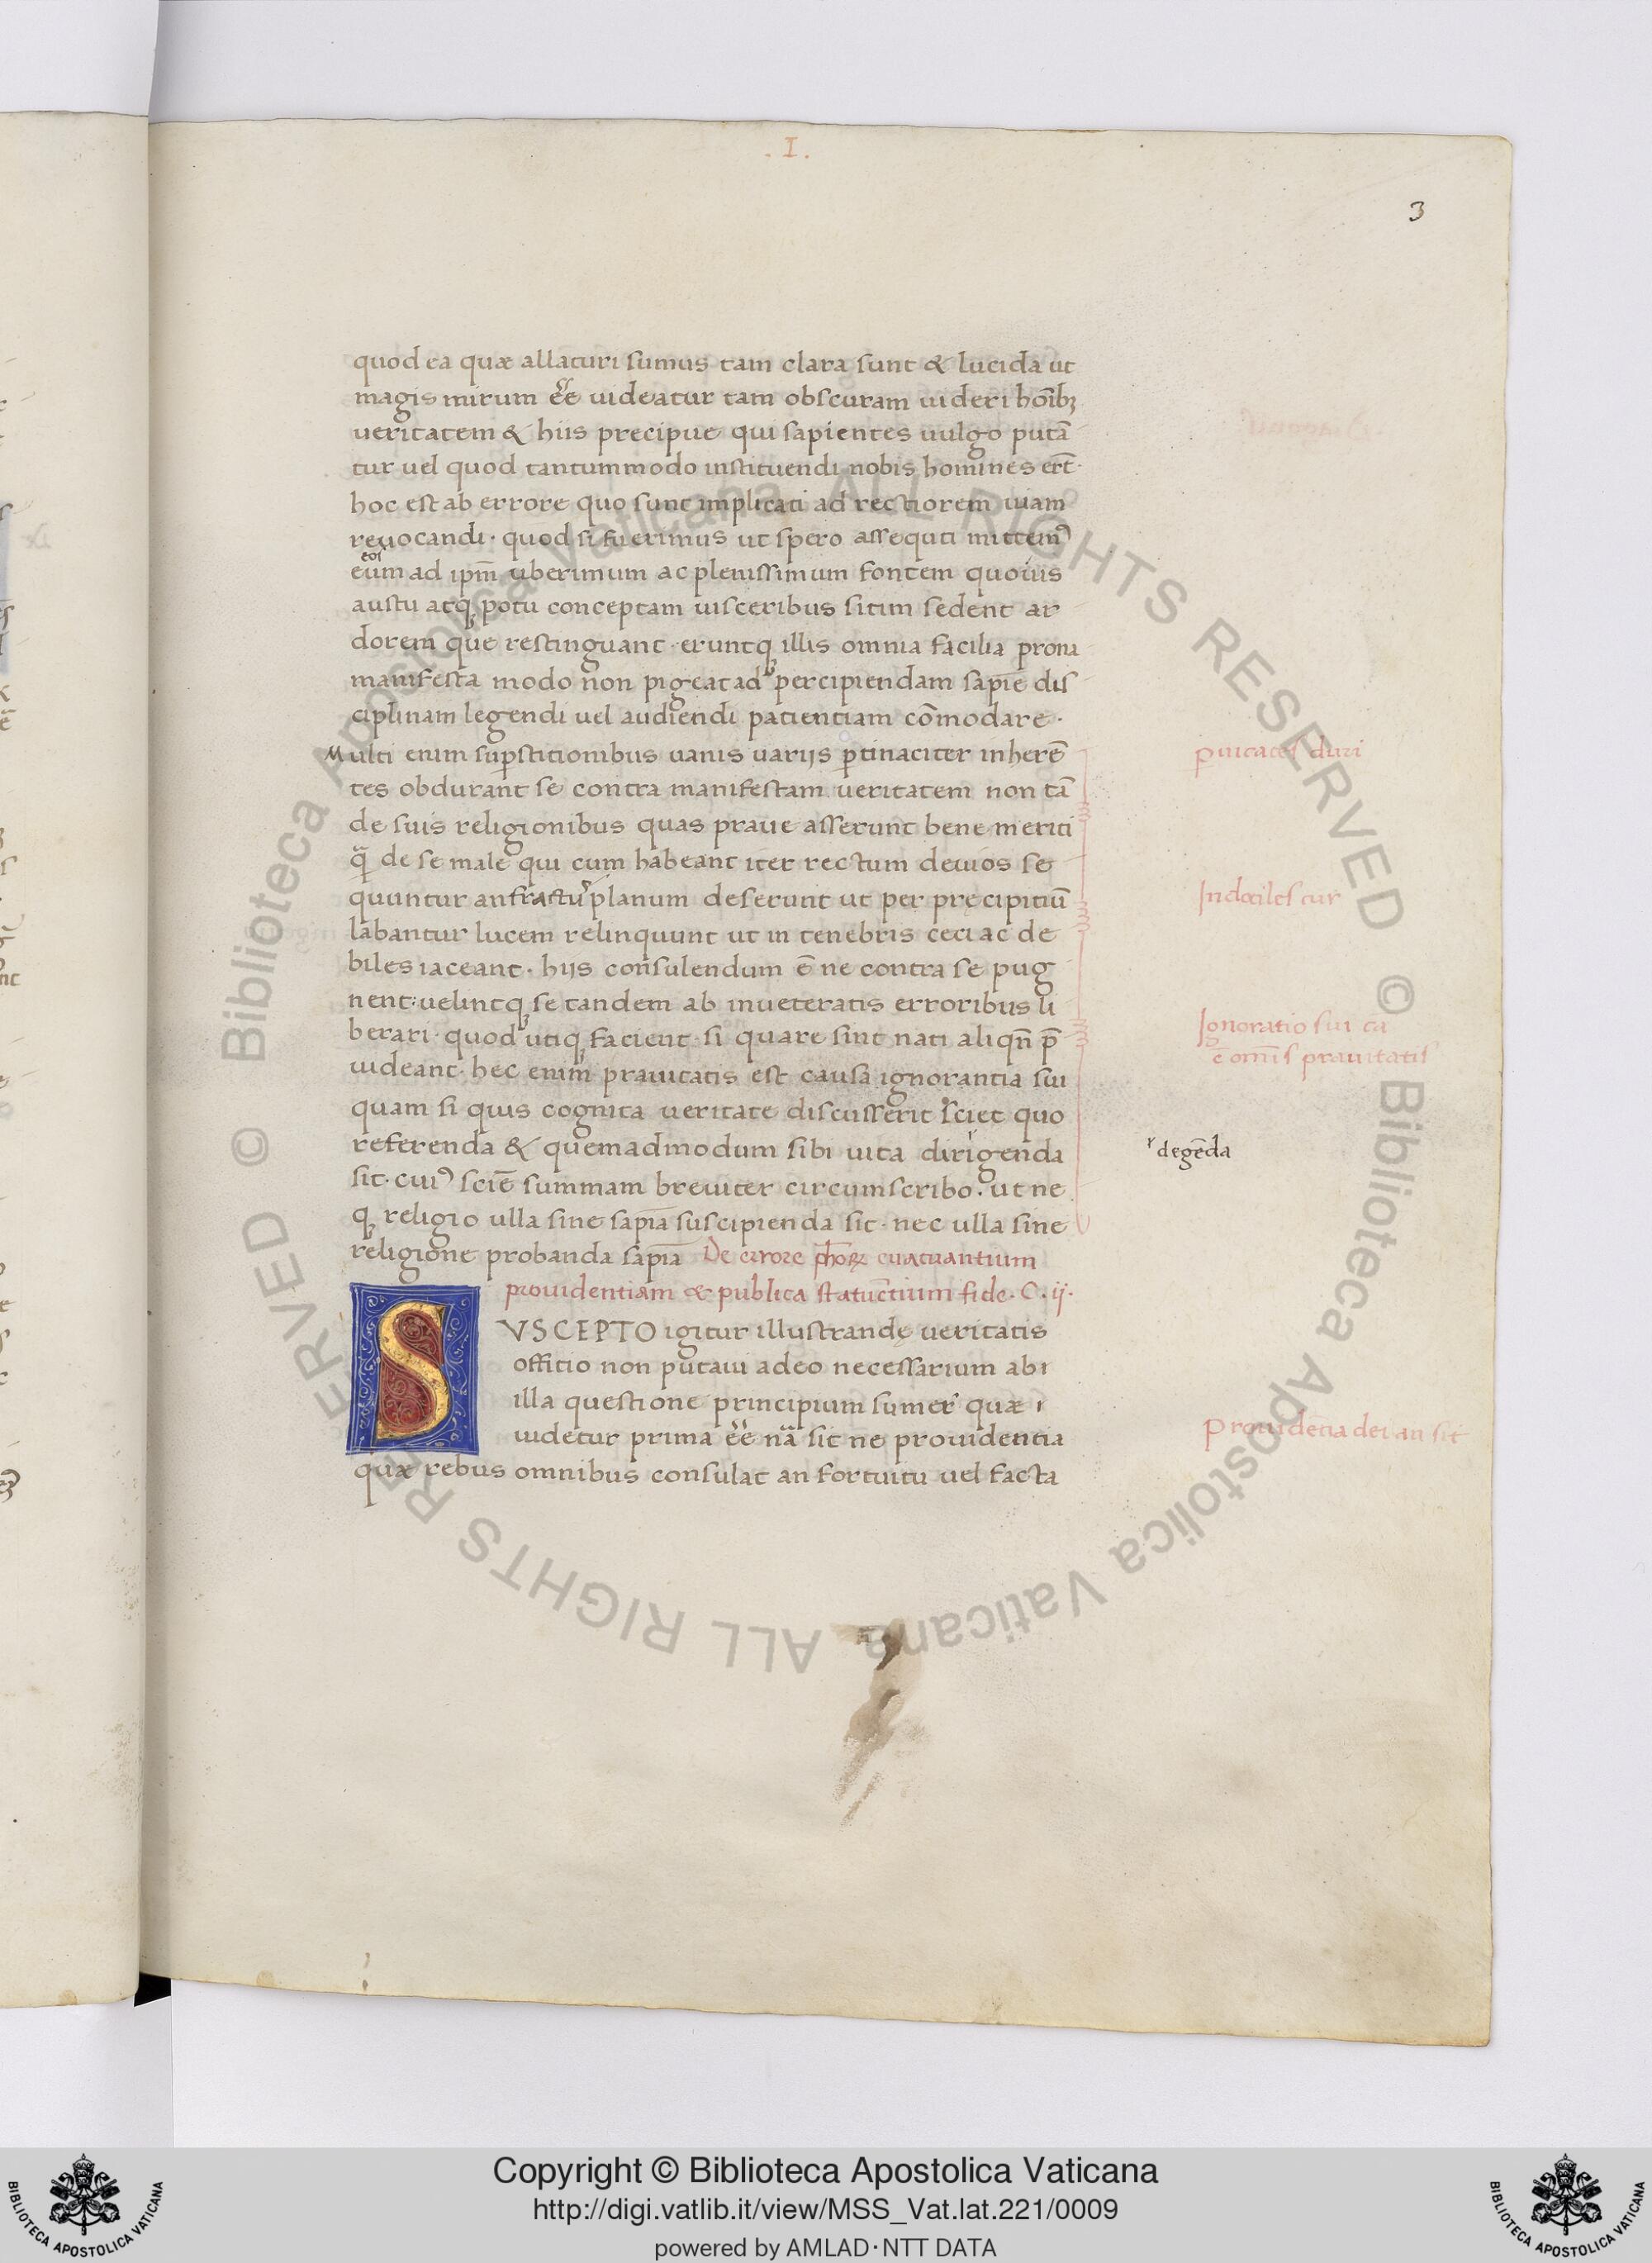 .I.
3
quod ea quæ allaturi sumus tam clara sunt & lucida ut
magis mirum eē uideatur tam obscuram uideri hoībꝫ
ueritatem & hiis precipue qui sapientes uulgo putā
tur uel quod tantummodo instituendi nobis homines erт̄·
hoc est ab errore quo sunt implicati ad rectiorem uiam
reuocandi· quod si fuerimus ut spero assequti mittemꝰ
eos
eum ad ipm̄ uberimum ac plenissimum fontem quoius
austu atqꝫ potu conceptam uisceribus sitim sedent ar
dorem que restinguant· eruntqꝫ illis omnia facilia prona
manifesta modo non pigeat ad percipiendam sapiē dis
ciplinam legendi uel audiendi patientiam cōmodare·
Multi enim suꝑstitionibus uanis uarijs ꝑtinaciter inherē
ꝑuicaces duri
tes obdurant se contra manifestam ueritatem non tā
de suis religionibus quas praue asserunt bene meriti
q̄ de se male qui cum habeant iter rectum deuios se
quuntur anfractuˢ planum deserunt ut per precipitiū
Indociles cur
labantur lucem relinquunt ut in tenebris ceci ac de
biles iaceant· hijs consulendum ē ne contra se pug
nent: uelintqꝫ se tandem ab inueteratis erroribus li
berari· quod utiqꝫ facient· si quare sint nati aliqn̄ p̄
Ignoratio sui cā
ē om̄īs prauitatis
uideant· hec enim prauitatis est causa ignorantia sui
quam si quis cognita ueritate discusserit sciet quo
referenda & quemadmodum sibi uita dirigenda
degēda
sit· cuiꝰ sciē summam breuiter circumscribo· ut ne
qꝫ religio ulla sine sapīa suscipienda sit· nec ulla sine
religione probanda sapīa De errore ph̄oꝝ euacuantium
prouidentiam & publica statuentium fide· C· ij·
SVSCEPTO igitur illustrandę ueritatis
offitio non putaui adeo necessarium ab
illa questione principium sumer̄ quæ
uidetur prima eē nā sit ne prouidentia
Prouidētia dei an sit
quæ rebus omnibus consulat an fortuitu uel facta
© Biblioteca Apostolica Vaticana ALL RIGHTS RESERVED
© Biblioteca Apostolica Vaticana ALL RIGHTS RESERVED
Copyright © Biblioteca Apostolica Vaticana
http://digi.vatlib.it/view/MSS_Vat.lat.221/0009
powered by AMLAD·NTT DATA
BIBLIOTECA APOSTOLICA VATICANA
BIBLIOTECA APOSTOLICA VATICANA